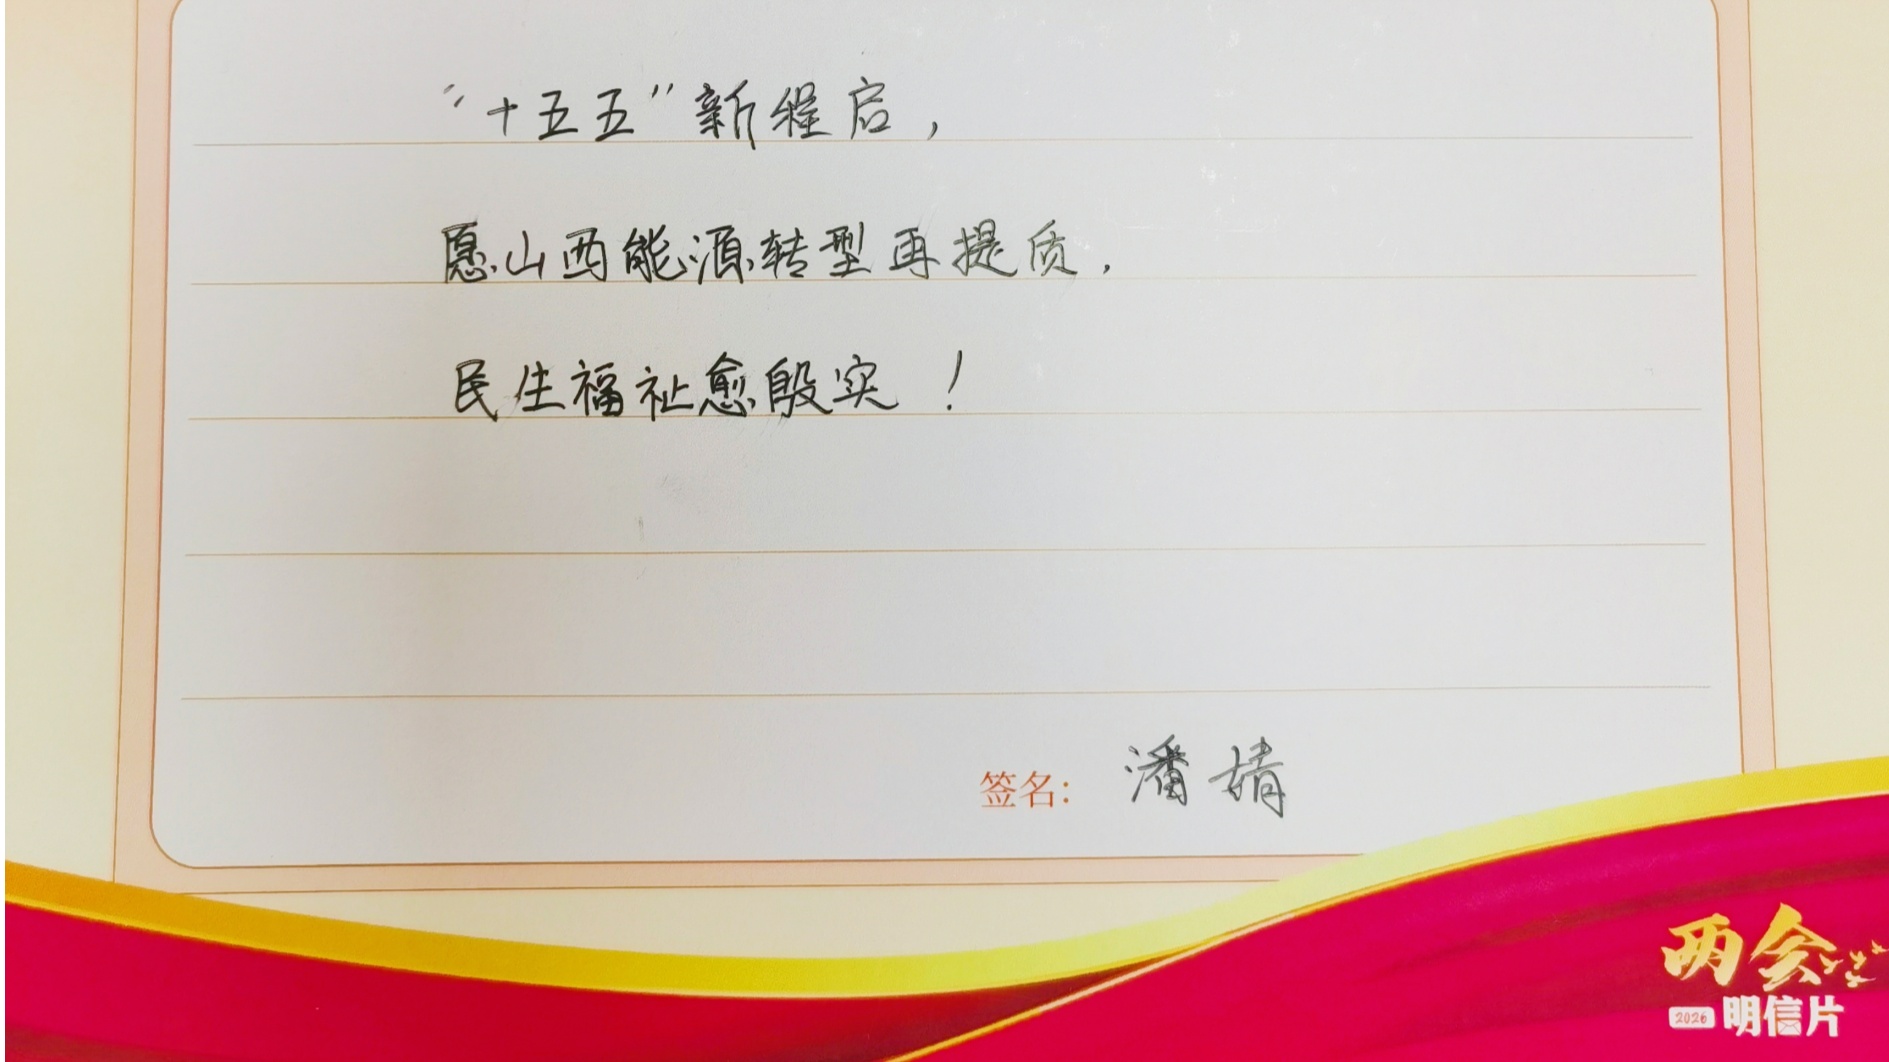 “十五五”新程启，
愿山西能源转型再提质，
民生福祉愈殷实！
签名：潘婧
两会
2026 明信片